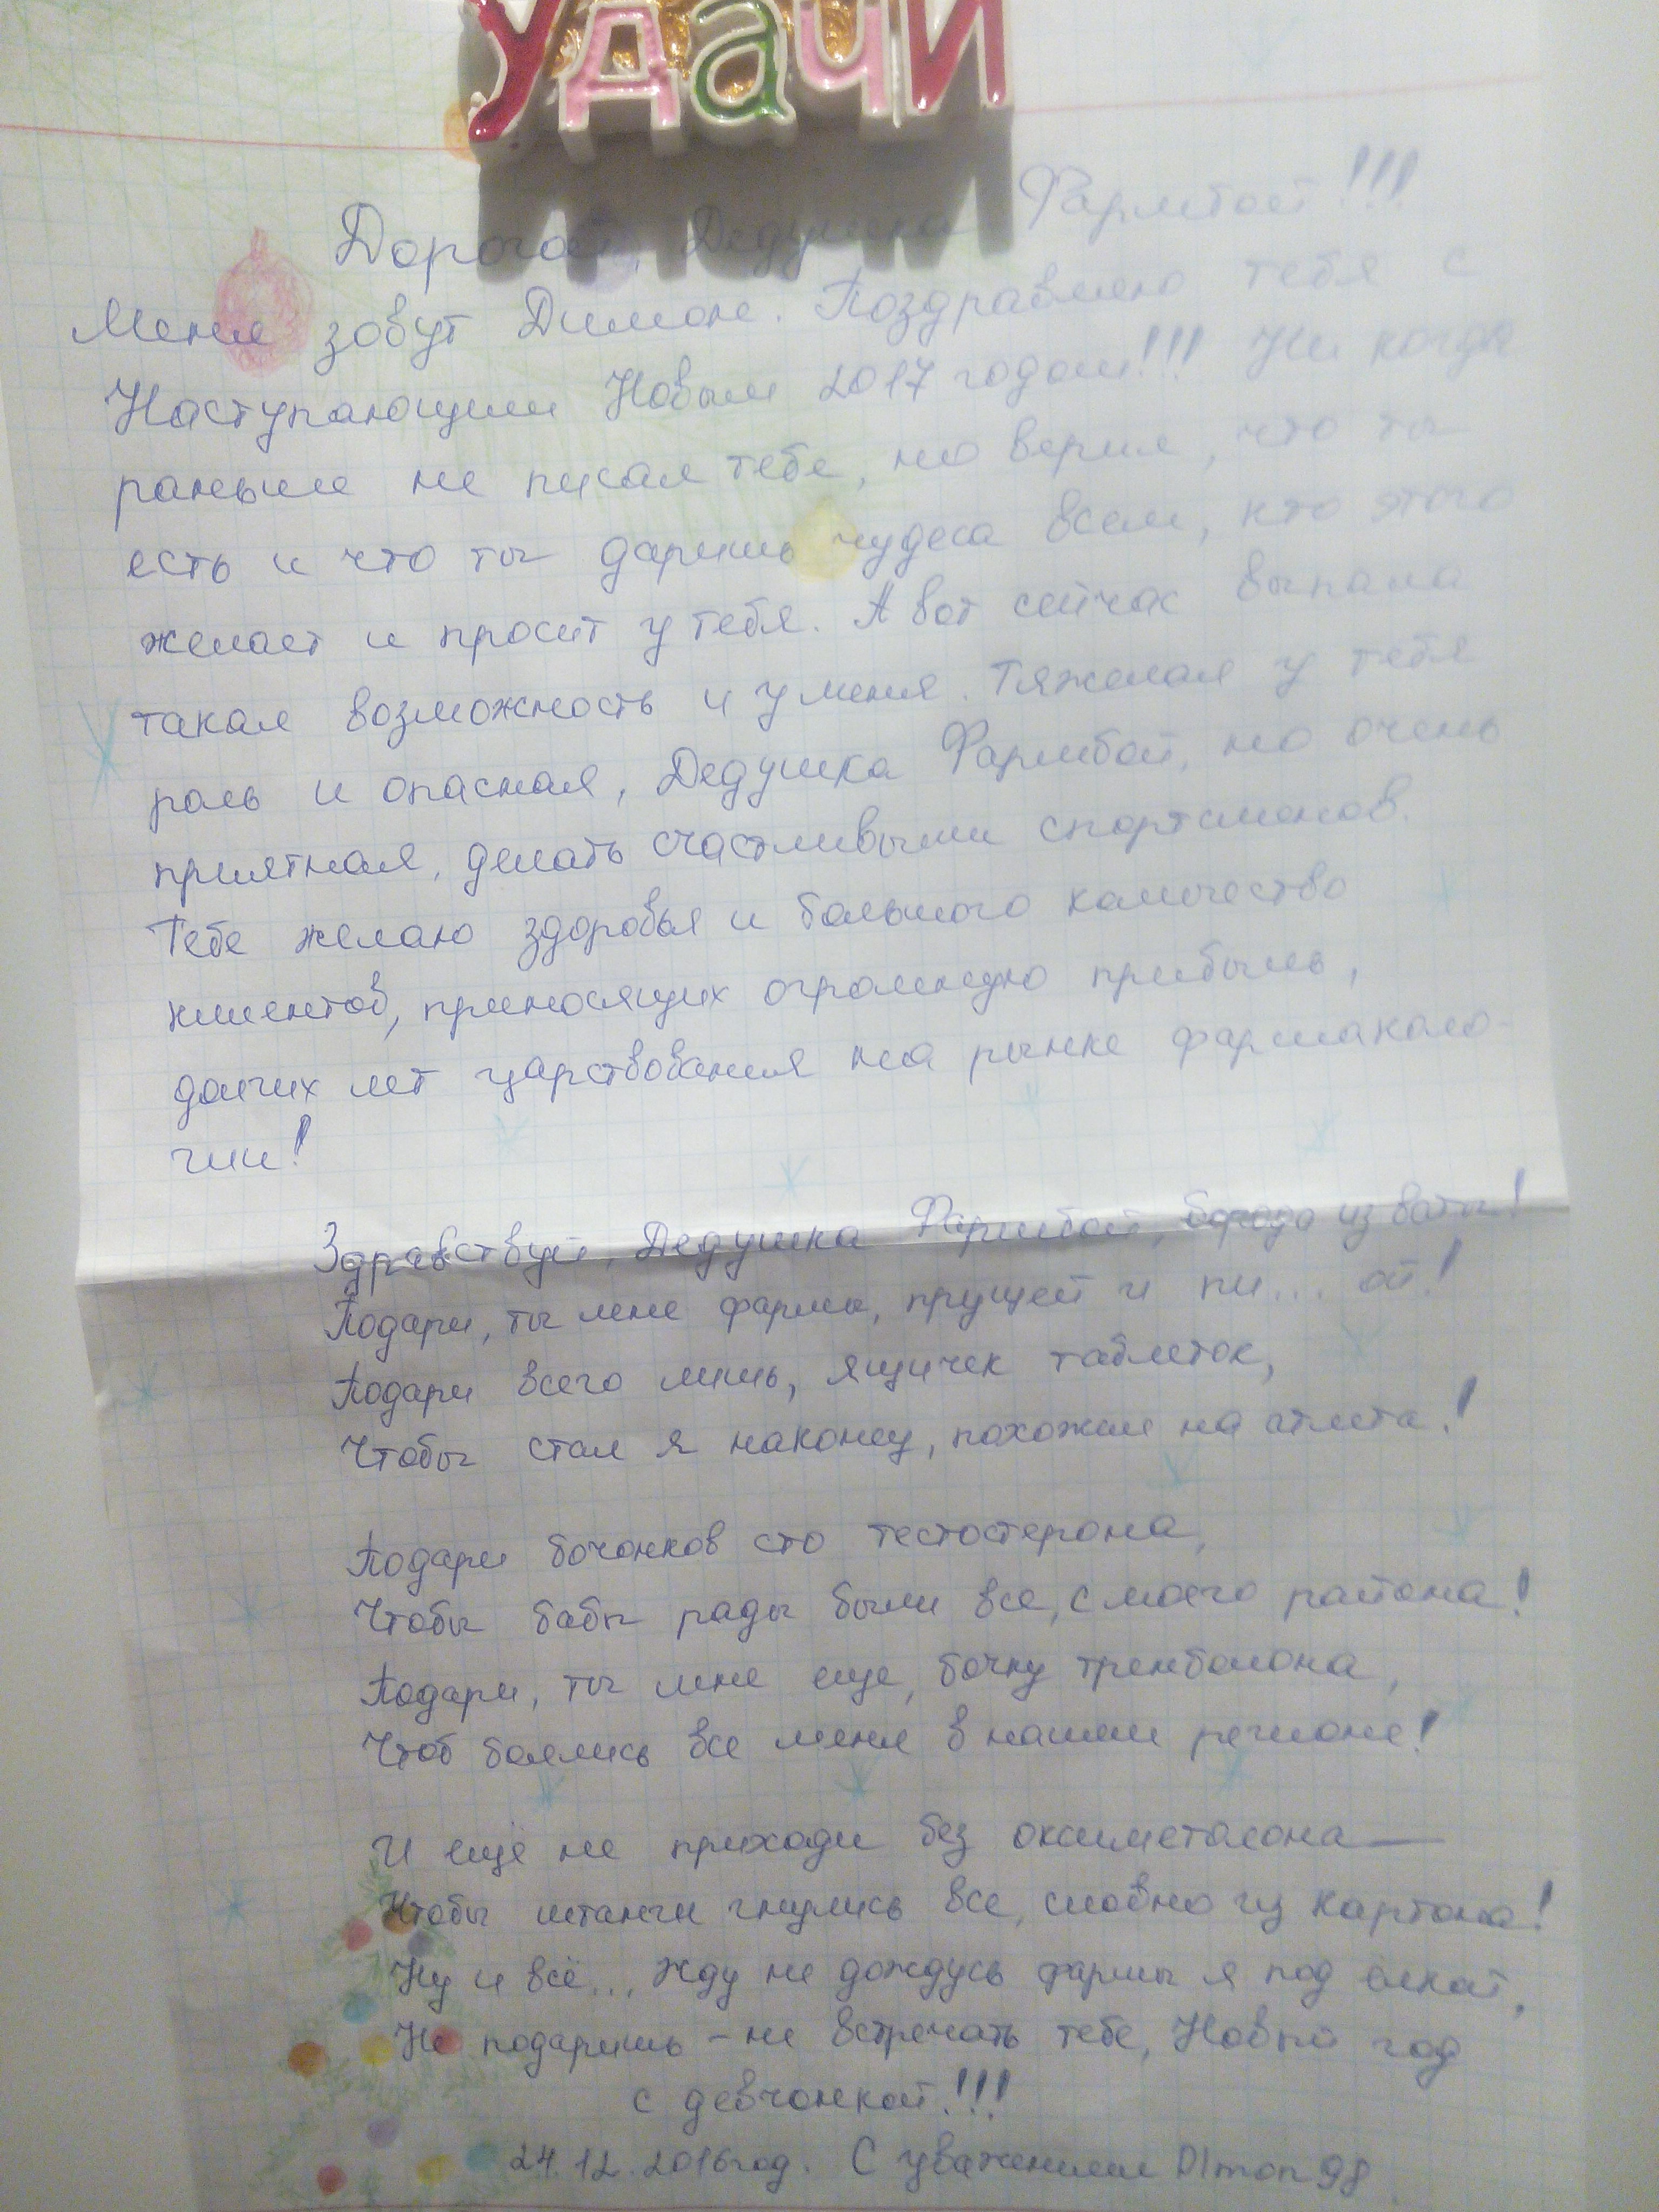 Удачи
Дорогой, Дедушка Фармбой!!!
Меня зовут Димон. Поздравляю тебя с
Наступающим Новым 2017 годом!!! Ни когда
раньше не писал тебе, но верил, что ты
есть и что ты даришь чудеса всем, кто этого
желает и просит у тебя. А вот сейчас выпала
такая возможность и у меня. Тяжелая у тебя
роль и опасная, Дедушка Фармбой, но очень
приятная, делать счастливыми спортсменов.
Тебе желаю здоровья и большого количество
клиентов, приносящих огромную прибыль,
долгих лет царствования на рынке фармаколо-
гии!
Здравствуй, Дедушка Фармбой, борода из ваты!
Подари, ты мне фармы, прущей и пи... ой!
Подари всего лишь, ящичек таблеток,
Чтобы стал я наконец, похожим на атлета!
Подари бочонков сто тестостерона,
Чтобы бабы рады были все, с моего района!
Подари, ты мне еще, бочку тренболона,
Чтоб боялись все меня в нашем регионе!
И ещё не приходи без оксиметалона —
Чтобы штанги гнулись все, словно из картона!
Ну и всё... Жду не дождусь фармы я под ёлкой,
Не подаришь - не встречать тебе, Новый год
с девчонкой!!!
24.12.2016год. С уважением DImon98